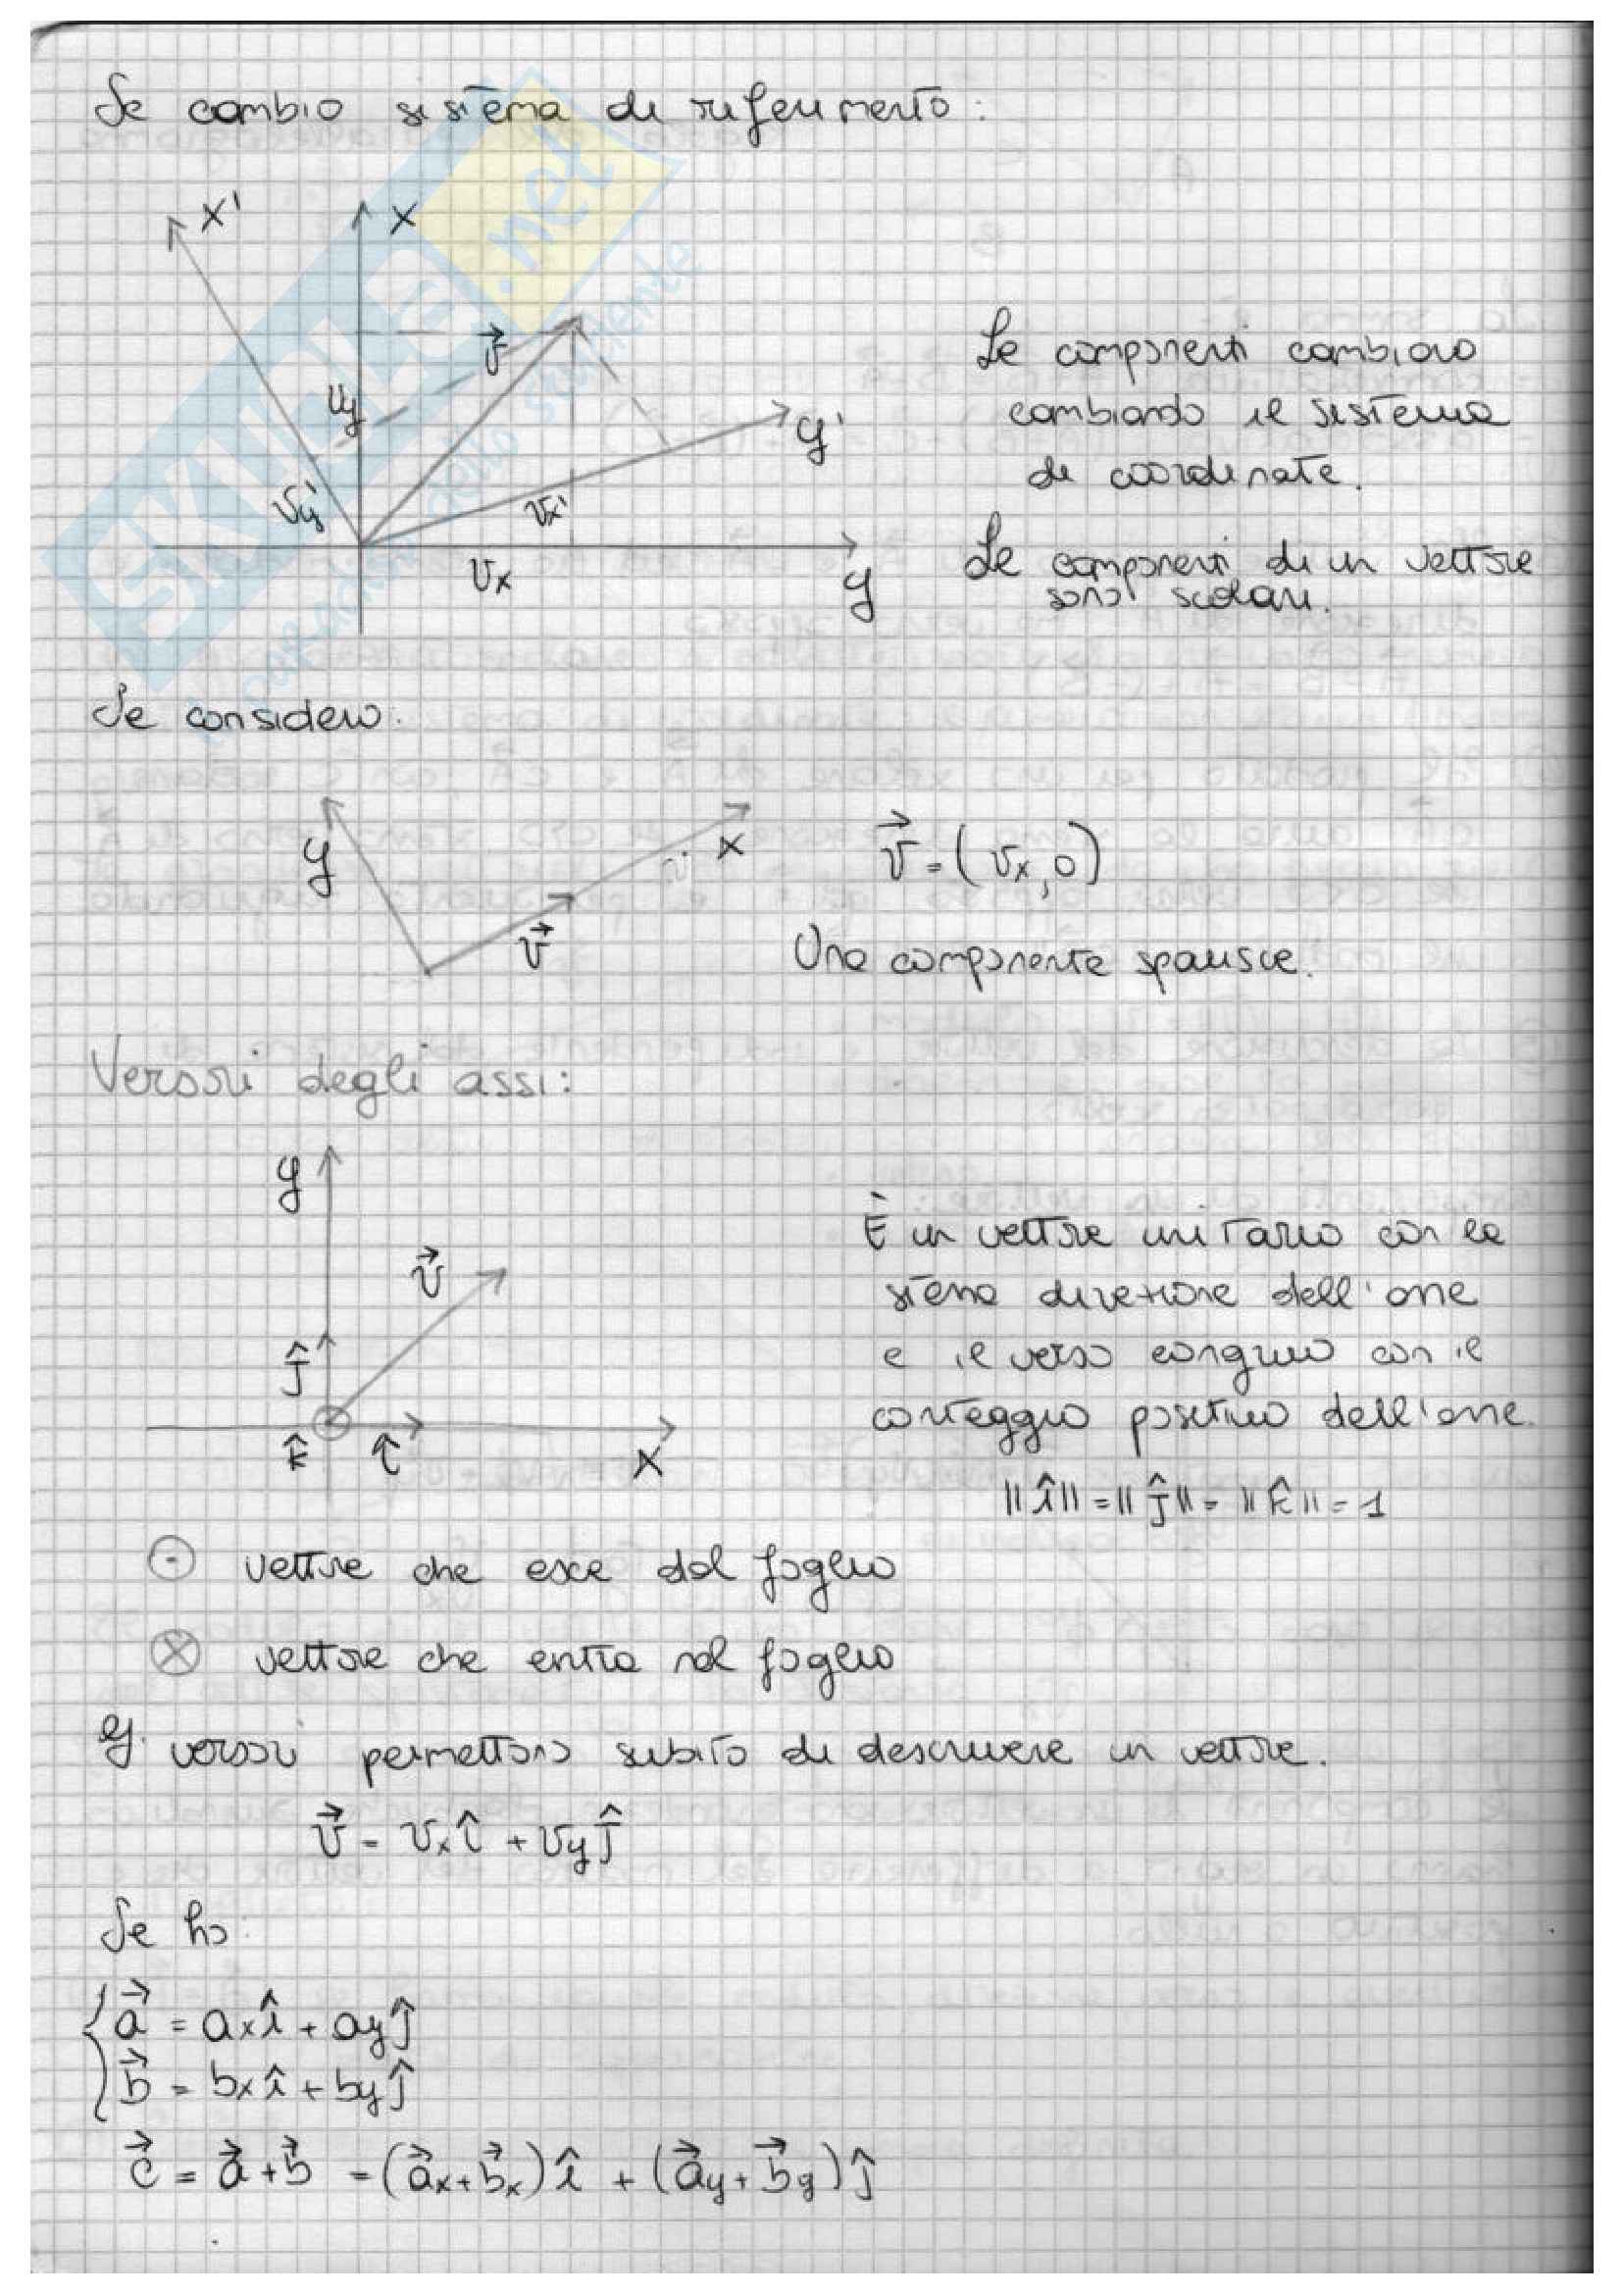 Se cambio sistema di riferimento:
x'
x
v⃗
vy
y'
vy'
vx'
vx
y
Le componenti cambiano
cambiando il sistema
di coordinate.
Le componenti di un vettore
sono scalari.
SKUOLA.net
Se considero:
y
x
v⃗
v⃗ = (vx, 0)
Una componente sparisce.
Versori degli assi:
y
v⃗
ĵ
k̂
î
x
È un vettore unitario con la
stessa direzione dell'asse
e il verso congruo con il
conteggio positivo dell'asse.
||î|| = ||ĵ|| = ||k̂|| = 1
⊙ vettore che esce dal foglio
⊗ vettore che entra nel foglio
versori permettono subito di descrivere un vettore.
v⃗ = vxî + vyĵ
Se ho:
{ a⃗ = axî + ayĵ
b⃗ = bxî + byĵ
c⃗ = a⃗ + b⃗ = (a⃗x + b⃗x)î + (a⃗y + b⃗y)ĵ